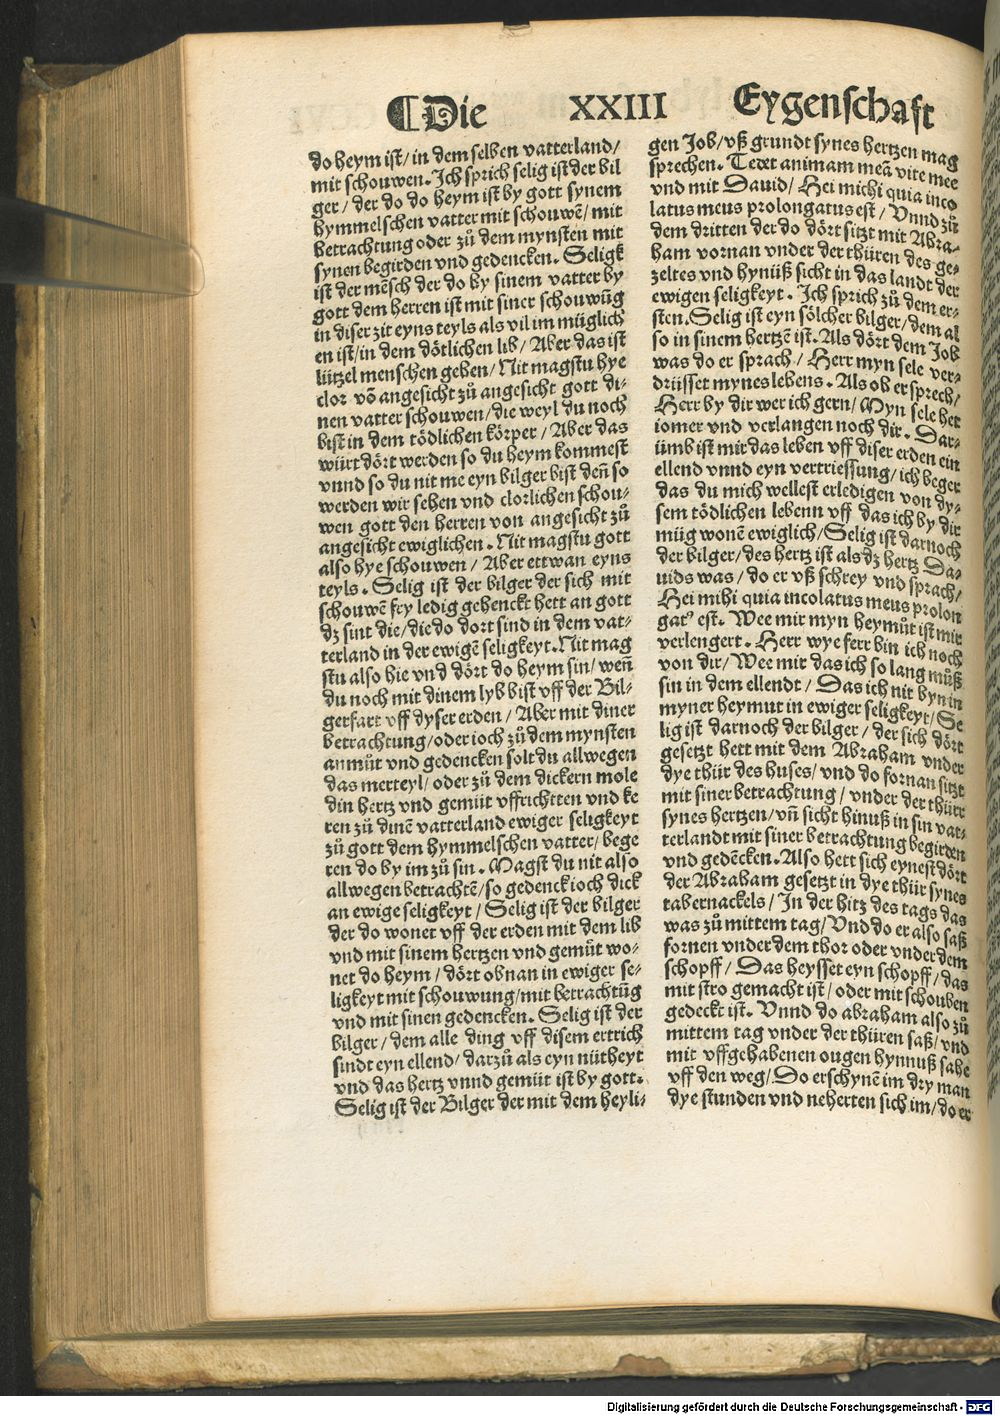 ¶Die XXIII Eygenschaft
do heym ist/ in dem selben vatterland/
mit schouwen. Ich sprich selig ist der bil
ger/ der do do heym ist by gott synem
hymmelschen vatter mit schouwē/ mit
betrachtung oder zů dem mynsten mit
synen begirden vnd gedencken. Seligk
ist der mēsch der do by sinem vatter by
gott dem herren ist mit siner schouwūg
in diser zit eyns teyls als vil im müglich
en ist/ in dem dötlichen lib/ Aber das ist
lützel menschen geben/ Nit magstu hye
clor vō angesicht zů angesicht gott di-
nen vatter schouwen/ die weyl du noch
bist in dem tödlichen körper/ Aber das
würt dört werden so du heym kommest
vnnd so du nit me eyn bilger bist deñ so
werden wir sehen vnd clorlichen schou-
wen gott den herren von angesicht zů
angesicht ewiglichen. Nit magstu gott
also hye schouwen/ Aber ettwan eyns
teyls. Selig ist der bilger der sich mit
schouwē fry ledig gehenckt hett an gott
dz sint die/ die do dort sind in dem vat-
terland in der ewigē seligkeyt. Nit mag
stu also hie vnd dört do heym sin/ weñ
du noch mit dinem lyb bist vff der Bil-
gerfart vff dyser erden/ Aber mit diner
betrachtung/ oder ioch zů dem mynsten
anmüt vnd gedencken solt du allwegen
das merteyl/ oder zů dem dickern mole
din hertz vnd gemüt vffrichtten vnd ke
ren zů dinē vatterland ewiger seligkeyt
zů gott dem hymmelschen vatter/ bege
ren do by im zů sin. Magst du nit also
allwegen betrachtē/ so gedenck ioch dick
an ewige seligkeyt/ Selig ist der bilger
der do wonet vff der erden mit dem lib
vnd mit sinem hertzen vnd gemüt wo-
net do heym/ dört obnan in ewiger se-
ligkeyt mit schouwung/ mit betrachtūg
vnd mit sinen gedencken. Selig ist der
bilger/ dem alle ding vff disem ertrich
sindt eyn ellend/ darzů als eyn nütheyt
vnd das hertz vnnd gemüt ist by gott.
Selig ist der Bilger der mit dem heyli-
gen Job/ vß grundt synes hertzen mag
sprechen. Tedet animam meā vite mee
vnd mit Dauid/ Hei michi quia inco
latus meus prolongatus est/ Vnnd zů
dem dritten der do dört sitzt mit Abra-
ham vornan vnder der thüren des ge-
zeltes vnd hynüß sicht in das landt der
ewigen seligkeyt. Ich sprich zů dem er-
sten. Selig ist eyn sölcher bilger/ dem al
so in sinem hertzē ist. Als dört dem Job
was do er sprach/ Herr myn sele ver-
drüsset mynes lebens. Als ob er sprech/
Herr by dir wer ich gern/ Myn sele het
iomer vnd verlangen noch dir. Dar-
ümb ist mir das leben vff diser erden ein
ellend vnnd eyn vertriessung/ ich beger
das du mich wellest erledigen von dy-
sem tödlichen lebenn vff das ich by dir
müg wonē ewiglich/ Selig ist darnoch
der bilger/ des hertz ist als dz hertz Da-
uids was/ do er vß schrey vnd sprach/
Hei mihi quia incolatus meus prolon
gat' est. Wee mir myn heymůt ist mir
verlengert. Herr wye ferr bin ich noch
von dir/ Wee mir das ich so lang můß
sin in dem ellendt/ Das ich nit byn in
myner heymut in ewiger seligkeyt/ Se
lig ist darnoch der bilger/ der sich dört
gesetzt hett mit dem Abraham vnder
dye thür des huses/ vnd do fornan sitzt
mit siner betrachtung/ vnder der thürr
synes hertzen/ vñ sicht hinuß in sin vat-
terlandt mit siner betrachtung begirden
vnd gedēcken. Also hett sich eynest dört
der Abraham gesetzt in dye thür synes
tabernackels/ In der hitz des tags das
was zů mittem tag/ Vnd do er also saß
fornen vnder dem thor oder vnder dem
schopff/ Das heysset eyn schopff/ das
mit stro gemacht ist/ oder mit schouben
gedeckt ist. Vnnd do abraham also zů
mittem tag vnder der thüren saß/ vnd
mit vffgehabenen ougen hynnuß sahe
vff den weg/ Do erschynē im dry man
dye stunden vnd neherten sich im/ do er
Digitalisierung gefördert durch die Deutsche Forschungsgemeinschaft - DFG